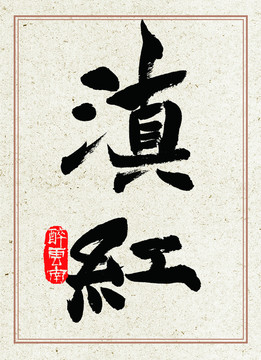 滇
紅
醉雲南